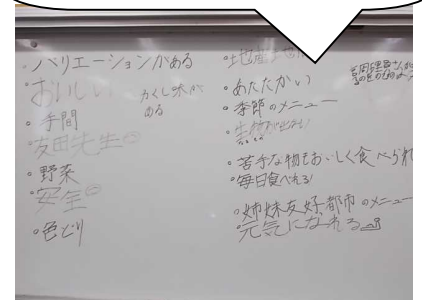 ・バリエーションがある
おいしい
かくし味が
ある
・手間
友田先生
・野菜
安全
・色どり
・あたたかい
・季節のメニュー
・苦手な物もおいしく食べられ
・毎日食べれる!
・姉妹友好都市のメニュー
元気になれる